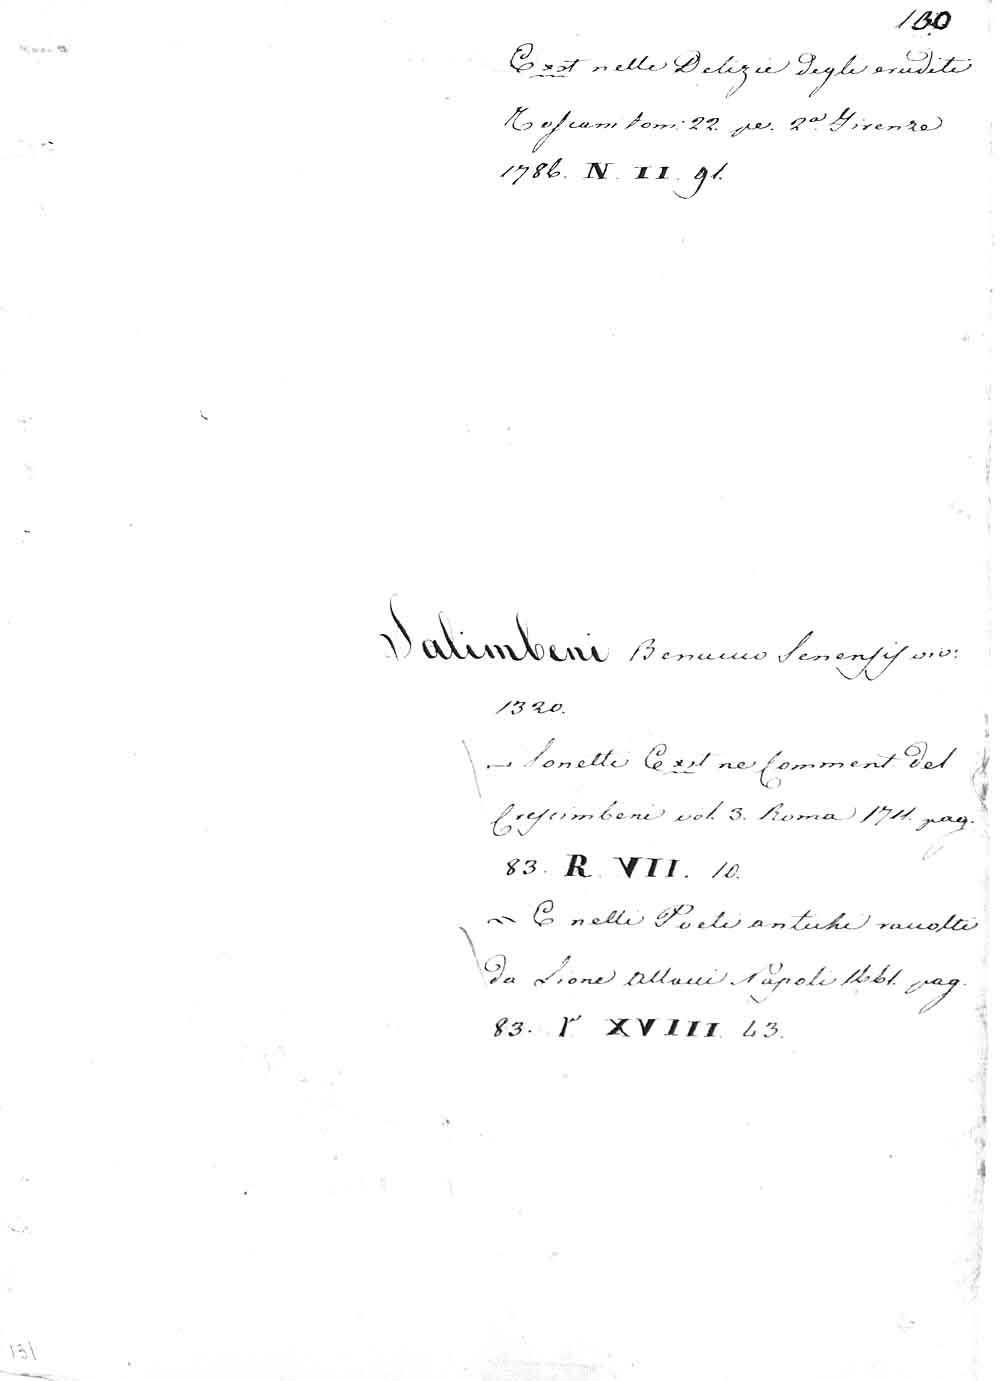 130
Exst nelle Delizie degli eruditi
Toscani tom: 22. pe. 2a. Firenze
1786. N. II. 91.
Salimbeni Benuccio Senensis viv:
1320.
~ Sonetti Exst ne Comment del
Crescimbeni vol. 3. Roma 1711. pag.
83. R. VII. 10.
~ E nelli Poeti antichi raccolti
da Lione Allacci Napoli 1661. pag.
83. XVIII. 43.
131